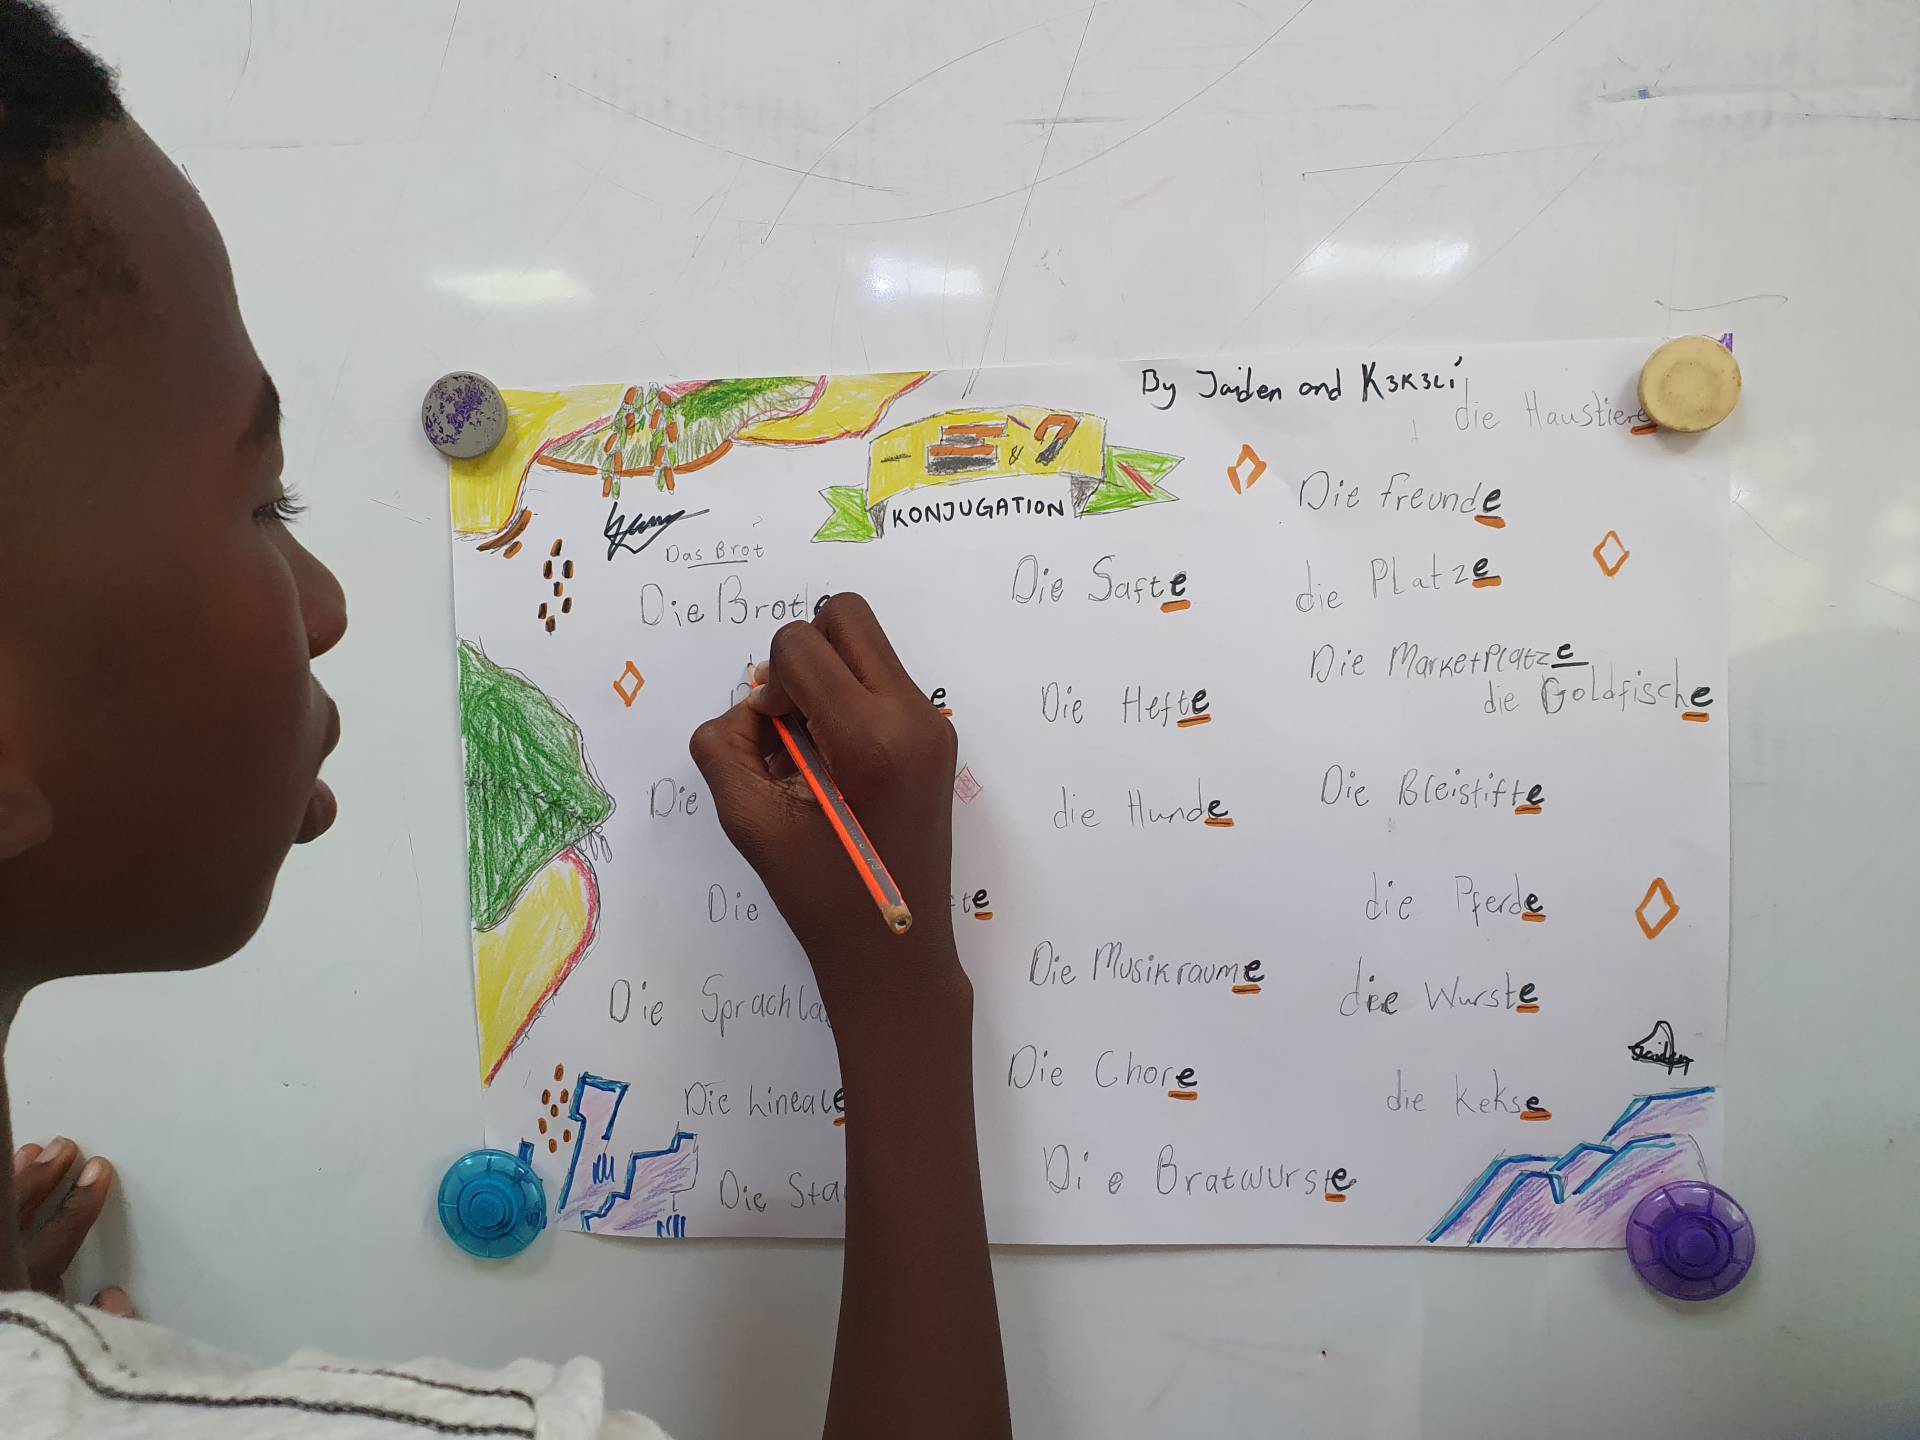 By Jaiden and K3K3Li
die Haustiere
- E & ?
KONJUGATION
Das Brot
Die Brote
Die
Die
Die Sprachla
Die Lineale
Die Sta
Die Safte
Die Hefte
die Hunde
Die Musikraume
Die Chore
Die Bratwurste
Die freunde
die Platze
Die Marketplatze
die Goldfische
Die Bleistifte
die Pferde
die Wurste
Jaiden
die Kekse